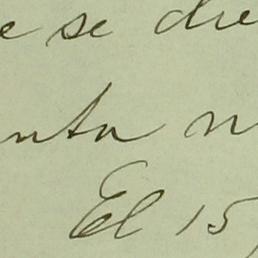 e se die
nta n
El 15